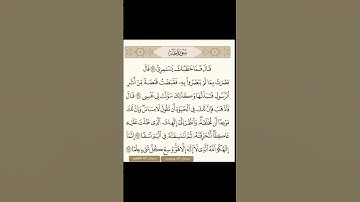 سُورَةُ طه
قَالَ فَمَا خَطْبُكَ يَٰسَٰمِرِيُّ ۝ قَالَ
بَصُرْتُ بِمَا لَمْ يَبْصُرُوا۟ بِهِۦ فَقَبَضْتُ قَبْضَةً مِّنْ أَثَرِ
ٱلرَّسُولِ فَنَبَذْتُهَا وَكَذَٰلِكَ سَوَّلَتْ لِى نَفْسِى ۝ قَالَ
فَٱذْهَبْ فَإِنَّ لَكَ فِى ٱلْحَيَوٰةِ أَن تَقُولَ لَا مِسَاسَ وَإِنَّ لَكَ
مَوْعِدًا لَّن تُخْلَفَهُۥ وَٱنظُرْ إِلَىٰٓ إِلَٰهِكَ ٱلَّذِى ظَلْتَ عَلَيْهِ
عَاكِفًا لَّنُحَرِّقَنَّهُۥ ثُمَّ لَنَنسِفَنَّهُۥ فِى ٱلْيَمِّ نَسْفًا ۝ إِنَّمَآ
إِلَٰهُكُمُ ٱللَّهُ ٱلَّذِى لَآ إِلَٰهَ إِلَّا هُوَ وَسِعَ كُلَّ شَىْءٍ عِلْمًا ۝
سبحان الله وبحمده سبحان الله العظيم